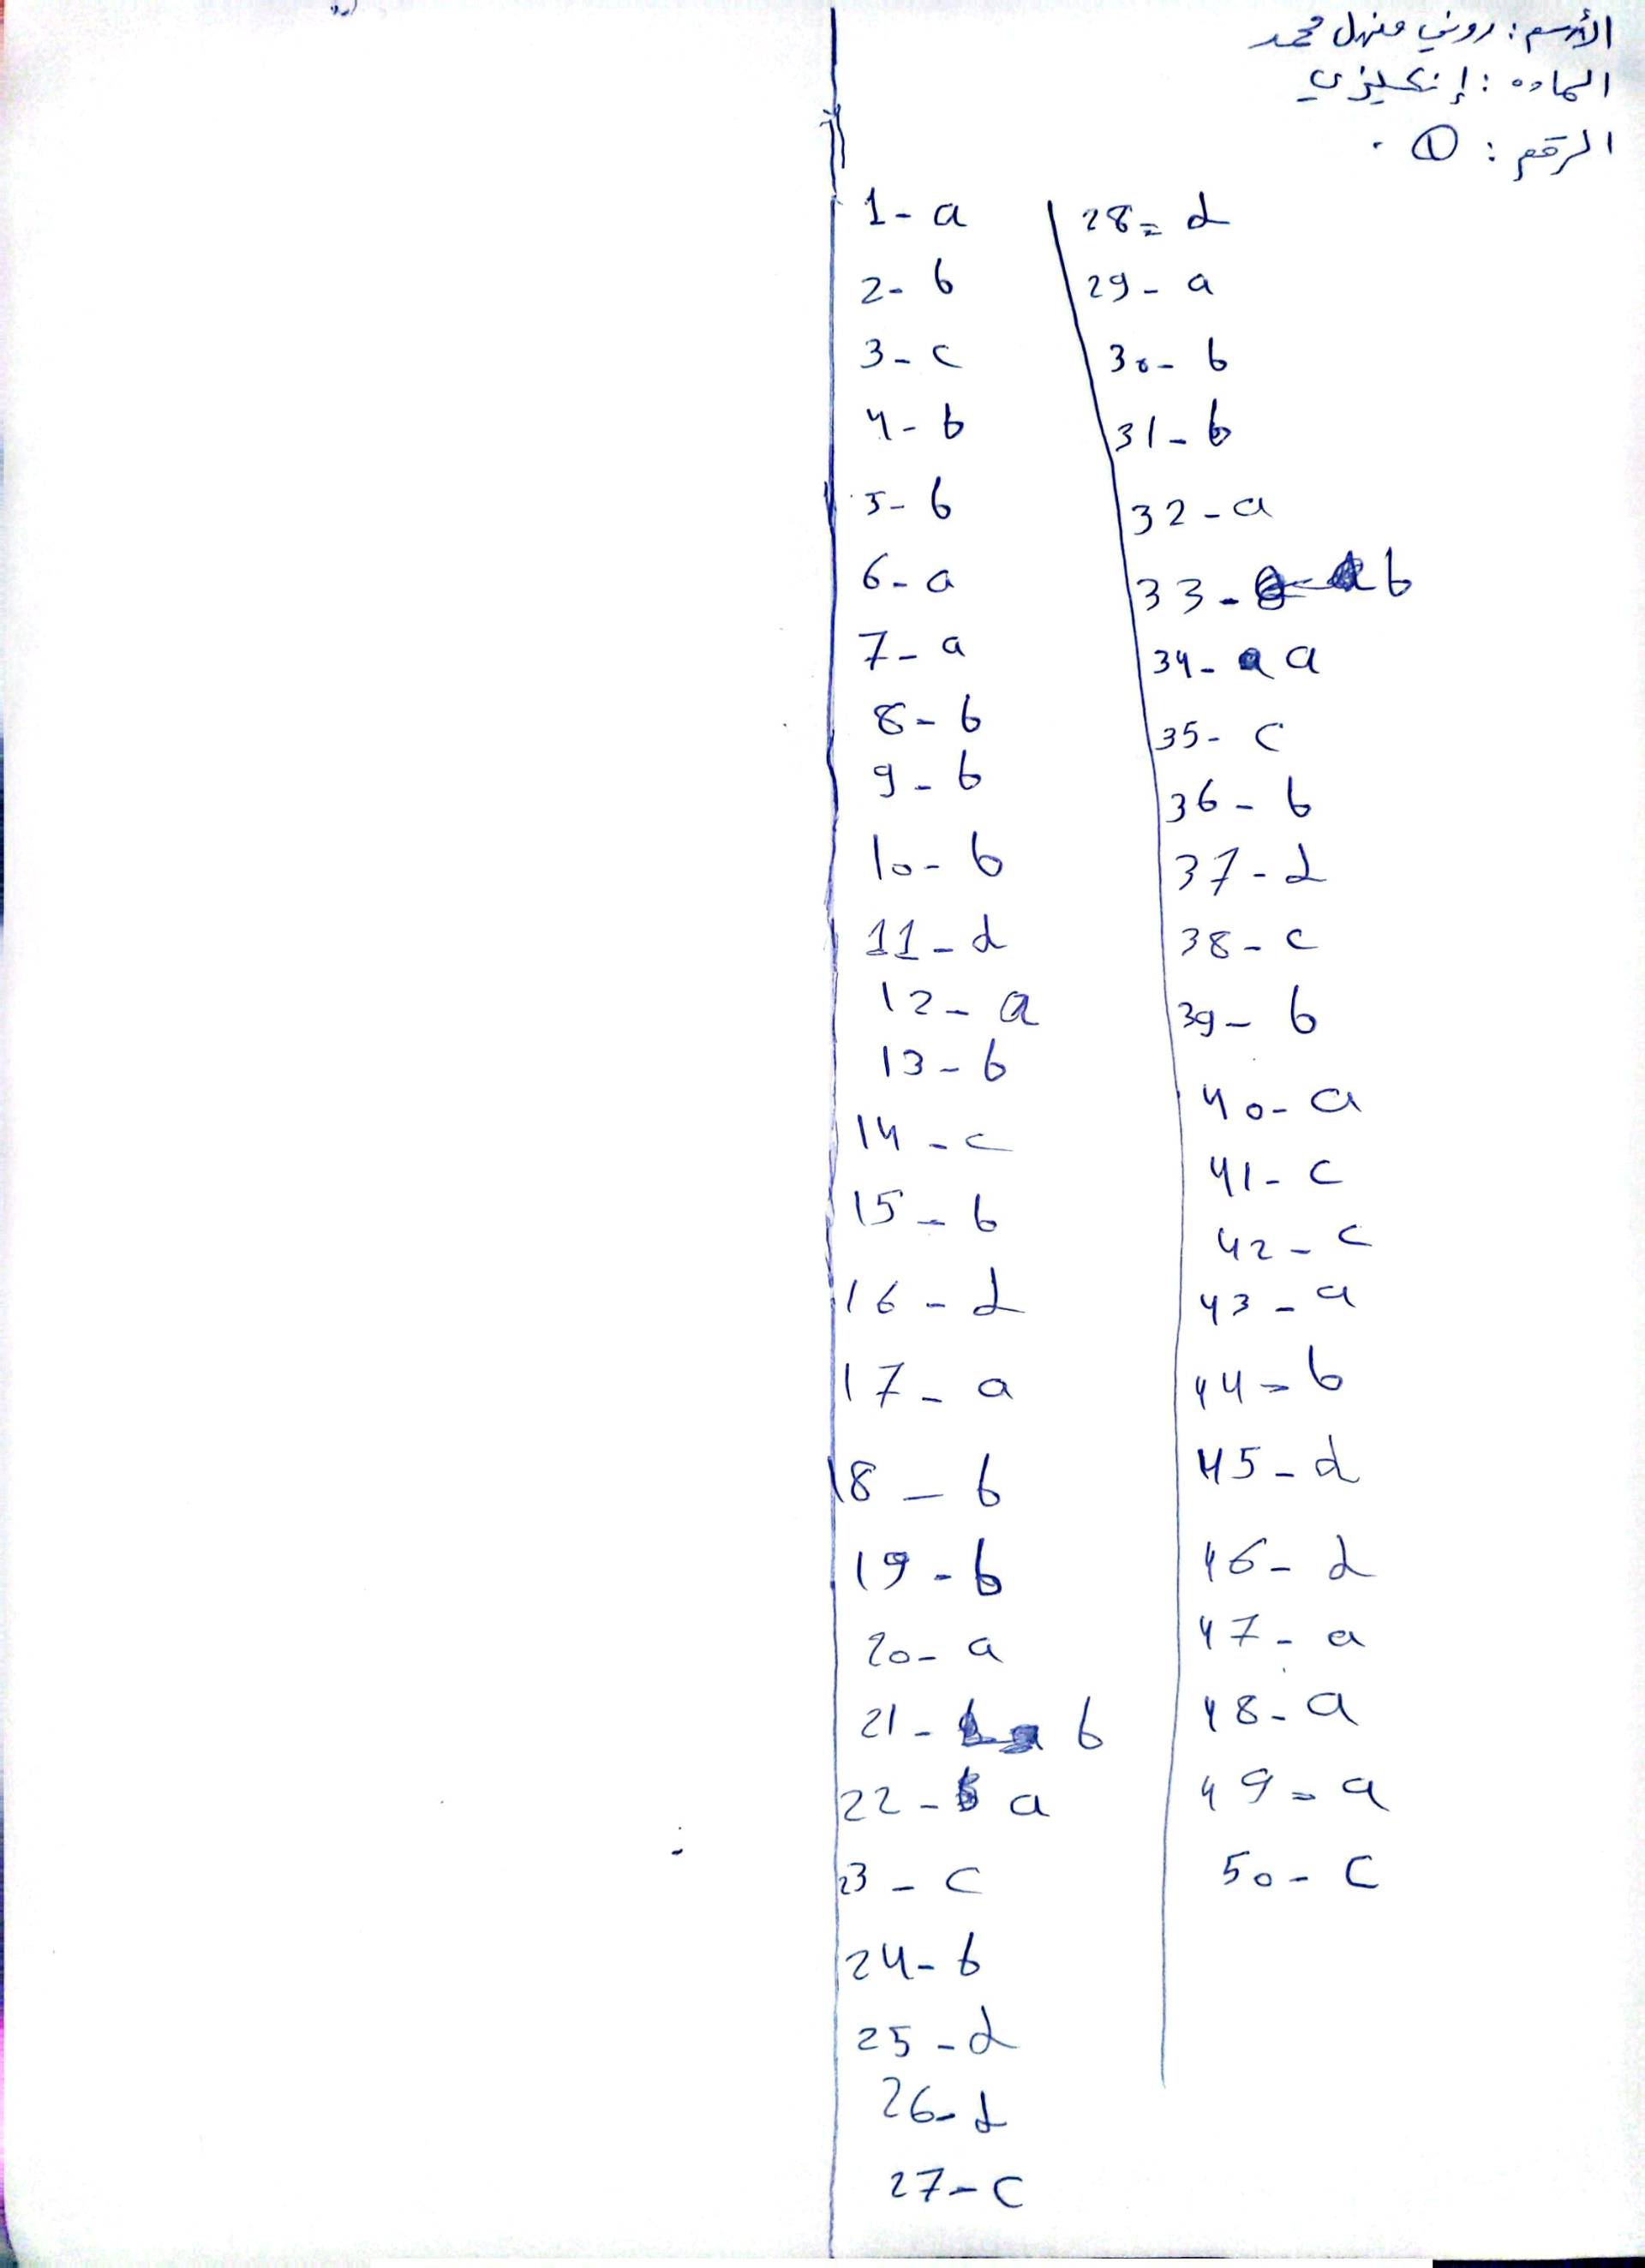 الأسم : روني منهل محمد
الماده : إنكليزي
الرقم : ①
1- a
2- b
3- c
4- b
5- b
6- a
7- a
8- b
9- b
10- b
11- d
12- a
13- b
14- c
15- b
16- d
17- a
18- b
19- b
20- a
21- b
22- a
23- c
24- b
25- d
26- d
27- c
28- d
29- a
30- b
31- b
32- a
33- b
34- a
35- c
36- b
37- d
38- c
39- b
40- a
41- c
42- c
43- a
44- b
45- d
46- d
47- a
48- a
49- a
50- c